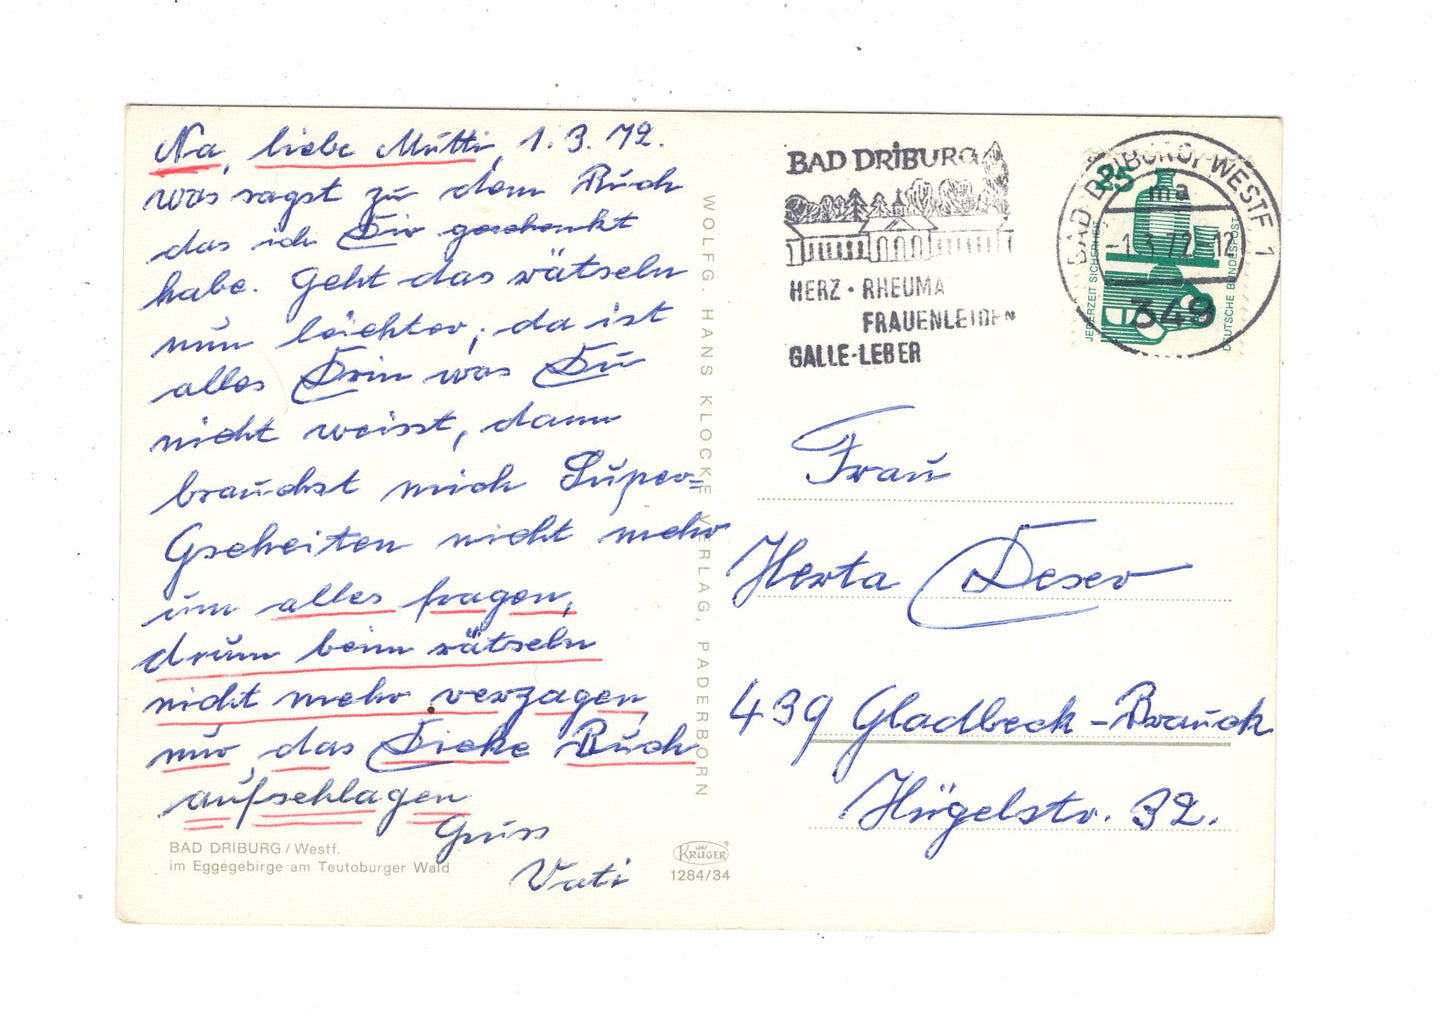 Na, liebe Mutti, 1.3.72.
was sagst zu dem Buch
das ich Dir geschenkt
habe. Geht das rätseln
nun leichter, da ist
alles Drin was Du
nicht weisst, dann
brauchst mich Super=
Gscheiten nicht mehr
um alles fragen,
drum beim rätseln
nicht mehr verzagen,
nur das Dicke Buch
aufschlagen
Gruss
Vati
BAD DRIBURG / Westf.
im Eggegebirge am Teutoburger Wald
WOLFG. HANS KLOCKE VERLAG, PADERBORN
KRÜGER
1284/34
BAD DRiBURG
HERZ · RHEUMA
FRAUENLEIDEN
GALLE·LEBER
25
JEDERZEIT SICHERHEIT
DEUTSCHE BUNDESPOST
BAD DRIBURG, WESTF 1
ma
-1.3.72.-12
349
Frau
Herta Deser
439 Gladbeck-Brauck
Hügelstr. 32.